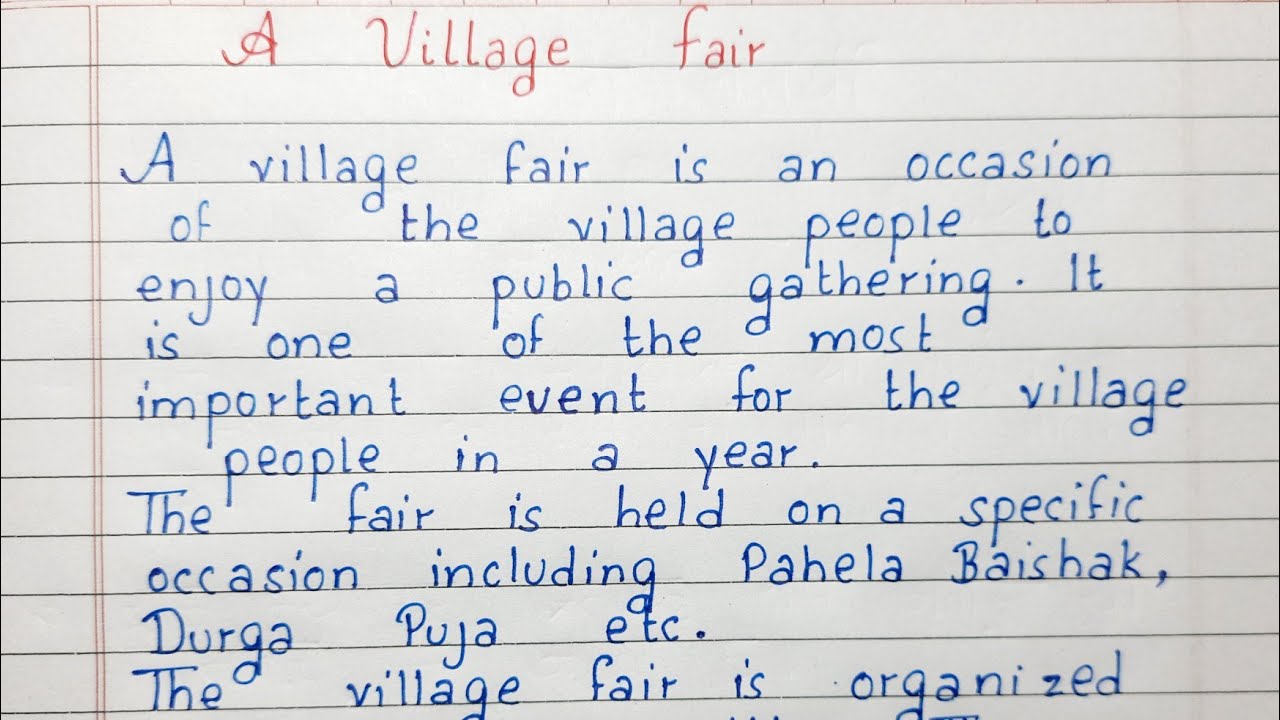 A Village fair
A village fair is an occasion
of the village people to
enjoy a public gathering. It
is one of the most
important event for the village
people in a year.
The fair is held on a specific
occasion including Pahela Baishak,
Durga Puja etc.
The village fair is organized